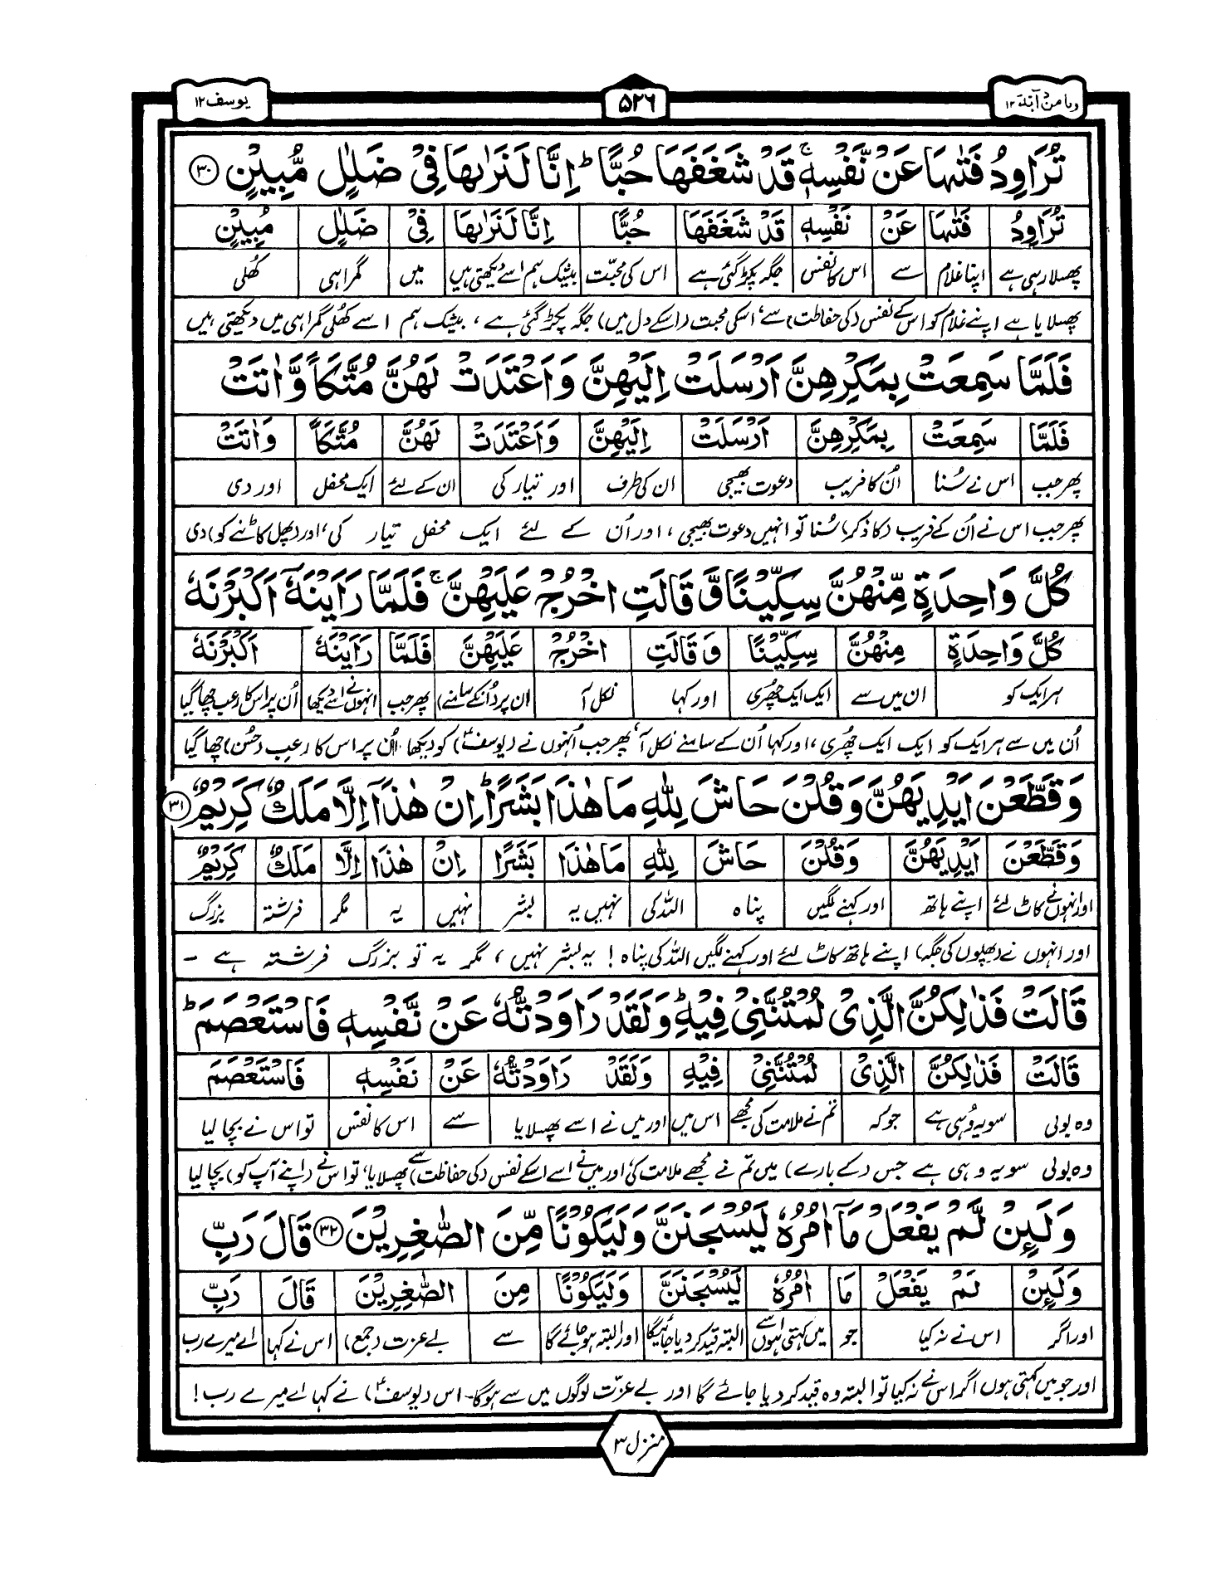 وما من دآبة ١٢
۵۲۶
یوسف ۱۲
تُرَاوِدُ فَتٰىهَا عَنْ نَّفْسِهٖ ۚ قَدْ شَغَفَهَا حُبًّا ؕ اِنَّا لَنَرٰىهَا فِیْ ضَلٰلٍ مُّبِیْنٍ ﴿۳۰﴾
تُرَاوِدُ فَتٰىهَا عَنْ نَفْسِهٖ قَدْ شَغَفَهَا حُبًّا اِنَّا لَنَرٰىهَا فِیْ ضَلٰلٍ مُبِیْنٍ
پھسلا رہی ہے اپنا غلام سے اس کا نفس جگہ پکڑ گئی ہے اس کی محبّت بیشک ہم اسے دیکھتی ہیں میں گمراہی کُھلی
پھسلایا ہے اپنے غلام کو اس کے نفس (کی حفاظت) سے، اسکی محبت (اسکے دل میں) جگہ پکڑ گئی ہے، بیشک ہم اسے کُھلی گمراہی میں دیکھتی ہیں
فَلَمَّا سَمِعَتْ بِمَكْرِهِنَّ اَرْسَلَتْ اِلَیْهِنَّ وَاَعْتَدَتْ لَهُنَّ مُتَّكَاً وَّاٰتَتْ
فَلَمَّا سَمِعَتْ بِمَكْرِهِنَّ اَرْسَلَتْ اِلَیْهِنَّ وَاَعْتَدَتْ لَهُنَّ مُتَّكَاً وَاٰتَتْ
پھر جب اس نے سُنا اُن کا فریب دعوت بھیجی ان کی طرف اور تیار کی ان کے لئے ایک محفل اور دی
پھر جب اس نے اُن کے فریب (کا ذکر) سُنا تو انہیں دعوت بھیجی، اور اُن کے لئے ایک محفل تیار کی، اور (پھل کاٹنے کو) دی
كُلَّ وَاحِدَةٍ مِّنْهُنَّ سِكِّیْنًا وَّ قَالَتِ اخْرُجْ عَلَیْهِنَّ ۚ فَلَمَّا رَاَیْنَهٗۤ اَكْبَرْنَهٗ
كُلَّ وَاحِدَةٍ مِنْهُنَّ سِكِّیْنًا وَ قَالَتِ اخْرُجْ عَلَیْهِنَّ فَلَمَّا رَاَیْنَهٗ اَكْبَرْنَهٗ
ہر ایک کو ان میں سے ایک ایک چھُری اور کہا نکل آ ان پر (انکے سامنے) پھر جب انہوں نے اسے دیکھا اُن پر اس کا رعب چھا گیا
اُن میں سے ہر ایک کو ایک ایک چھُری، اور کہا اُن کے سامنے نکل آ، پھر جب اُنہوں نے (یوسفؑ) کو دیکھا اُن پر اس کا رعبِ (حُسن) چھا گیا
وَقَطَّعْنَ اَیْدِیَهُنَّ وَقُلْنَ حَاشَ لِلّٰهِ مَا هٰذَا بَشَرًا ؕ اِنْ هٰذَاۤ اِلَّا مَلَكٌ كَرِیْمٌ ﴿۳۱﴾
وَقَطَّعْنَ اَیْدِیَهُنَّ وَقُلْنَ حَاشَ لِلّٰهِ مَا هٰذَا بَشَرًا اِنْ هٰذَا اِلَّا مَلَكٌ كَرِیْمٌ
اور انہوں نے کاٹ لئے اپنے ہاتھ اور کہنے لگیں پناہ اللہ کی نہیں یہ بشر نہیں یہ مگر فرشتہ بزرگ
اور انہوں نے (پھلوں کی جگہ) اپنے ہاتھ کاٹ لئے اور کہنے لگیں اللہ کی پناہ! یہ بشر نہیں، مگر یہ تو بزرگ فرشتہ ہے ۔
قَالَتْ فَذٰلِكُنَّ الَّذِیْ لُمْتُنَّنِیْ فِیْهِ ؕ وَلَقَدْ رَاوَدْتُّهٗ عَنْ نَّفْسِهٖ فَاسْتَعْصَمَ ؕ
قَالَتْ فَذٰلِكُنَّ الَّذِیْ لُمْتُنَّنِیْ فِیْهِ وَلَقَدْ رَاوَدْتُّهٗ عَنْ نَفْسِهٖ فَاسْتَعْصَمَ
وہ بولی سو یہ وُہی ہے جو کہ تم نے ملامت کی مجھے اس میں اور میں نے اسے پھسلایا سے اس کا نفس تو اس نے بچا لیا
وہ بولی سو یہ وہی ہے جس (کے بارے) میں تم نے مجھے ملامت کی، اور میں نے اسے اسکے نفس (کی حفاظت) سے پھسلایا، تو اس نے (اپنے آپ کو) بچا لیا
وَلَىِٕنْ لَّمْ یَفْعَلْ مَاۤ اٰمُرُهٗ لَیُسْجَنَنَّ وَلَیَكُوْنًا مِّنَ الصّٰغِرِیْنَ ﴿۳۲﴾ قَالَ رَبِّ
وَلَىِٕنْ لَمْ یَفْعَلْ مَا اٰمُرُهٗ لَیُسْجَنَنَّ وَلَیَكُوْنًا مِنَ الصّٰغِرِیْنَ قَالَ رَبِّ
اور اگر اس نے نہ کیا جو میں کہتی ہوں اسے البتہ قید کر دیا جائیگا اور البتہ ہو جائے گا سے بے عزت (جمع) اس نے کہا اے میرے رب
اور جو میں کہتی ہوں اگر اس نے نہ کیا تو البتہ وہ قید کر دیا جائے گا اور بے عزّت لوگوں میں سے ہو گا۔ اس (یوسفؑ) نے کہا اے میرے رب!
منزل ۳